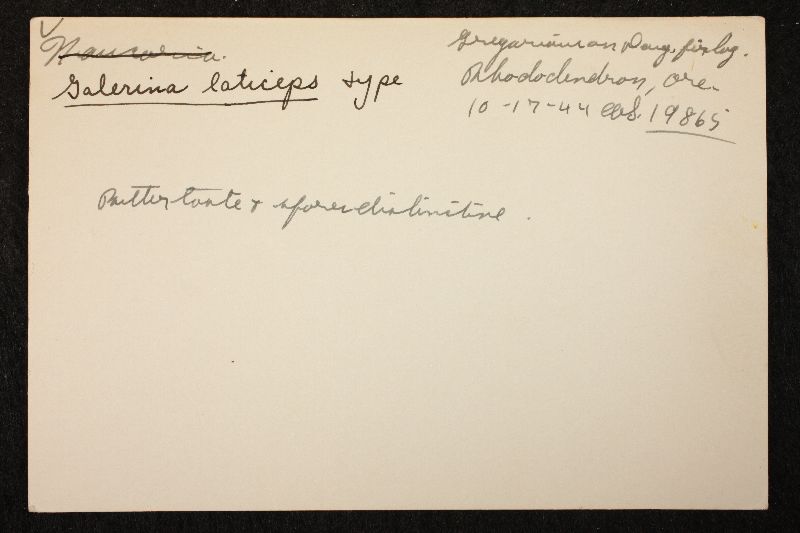 Naucoria.
Galerina laticeps type
Gregarious on Doug. fir log.
Rhododendron, Ore.
10-17-44 19865
Bitter taste & spores distinctive.